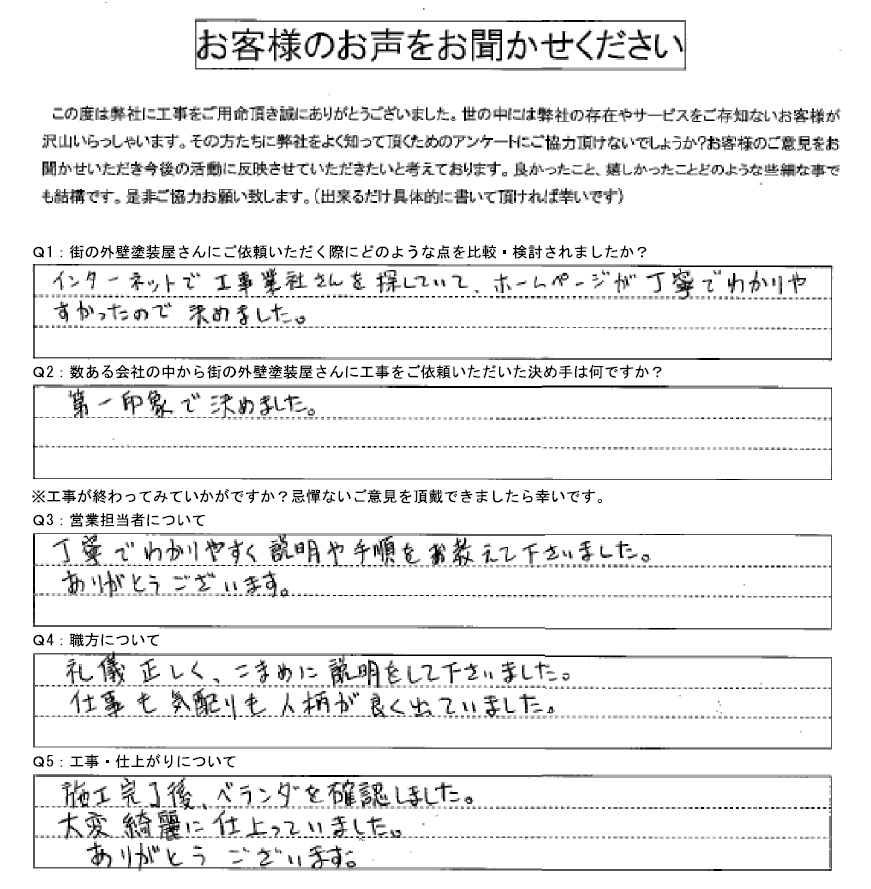 お客様のお声をお聞かせください
この度は弊社に工事をご用命頂き誠にありがとうございました。世の中には弊社の存在やサービスをご存知ないお客様が
沢山いらっしゃいます。その方たちに弊社をよく知って頂くためのアンケートにご協力頂けないでしょうか?お客様のご意見をお
聞かせいただき今後の活動に反映させていただきたいと考えております。良かったこと、嬉しかったことどのような些細な事で
も結構です。是非ご協力お願い致します。(出来るだけ具体的に書いて頂ければ幸いです)
Q1：街の外壁塗装屋さんにご依頼いただく際にどのような点を比較・検討されましたか？
インターネットで工事業社さんを探していて、ホームページが丁寧でわかりや
すかったので決めました。
Q2：数ある会社の中から街の外壁塗装屋さんに工事をご依頼いただいた決め手は何ですか？
第一印象で決めました。
※工事が終わってみていかがですか？忌憚ないご意見を頂戴できましたら幸いです。
Q3：営業担当者について
丁寧でわかりやすく説明や手順をお教えて下さいました。
ありがとうございます。
Q4：職方について
礼儀正しく、こまめに説明をして下さいました。
仕事も気配りも人柄が良く出ていました。
Q5：工事・仕上がりについて
施工完了後、ベランダを確認しました。
大変綺麗に仕上っていました。
ありがとうございます。